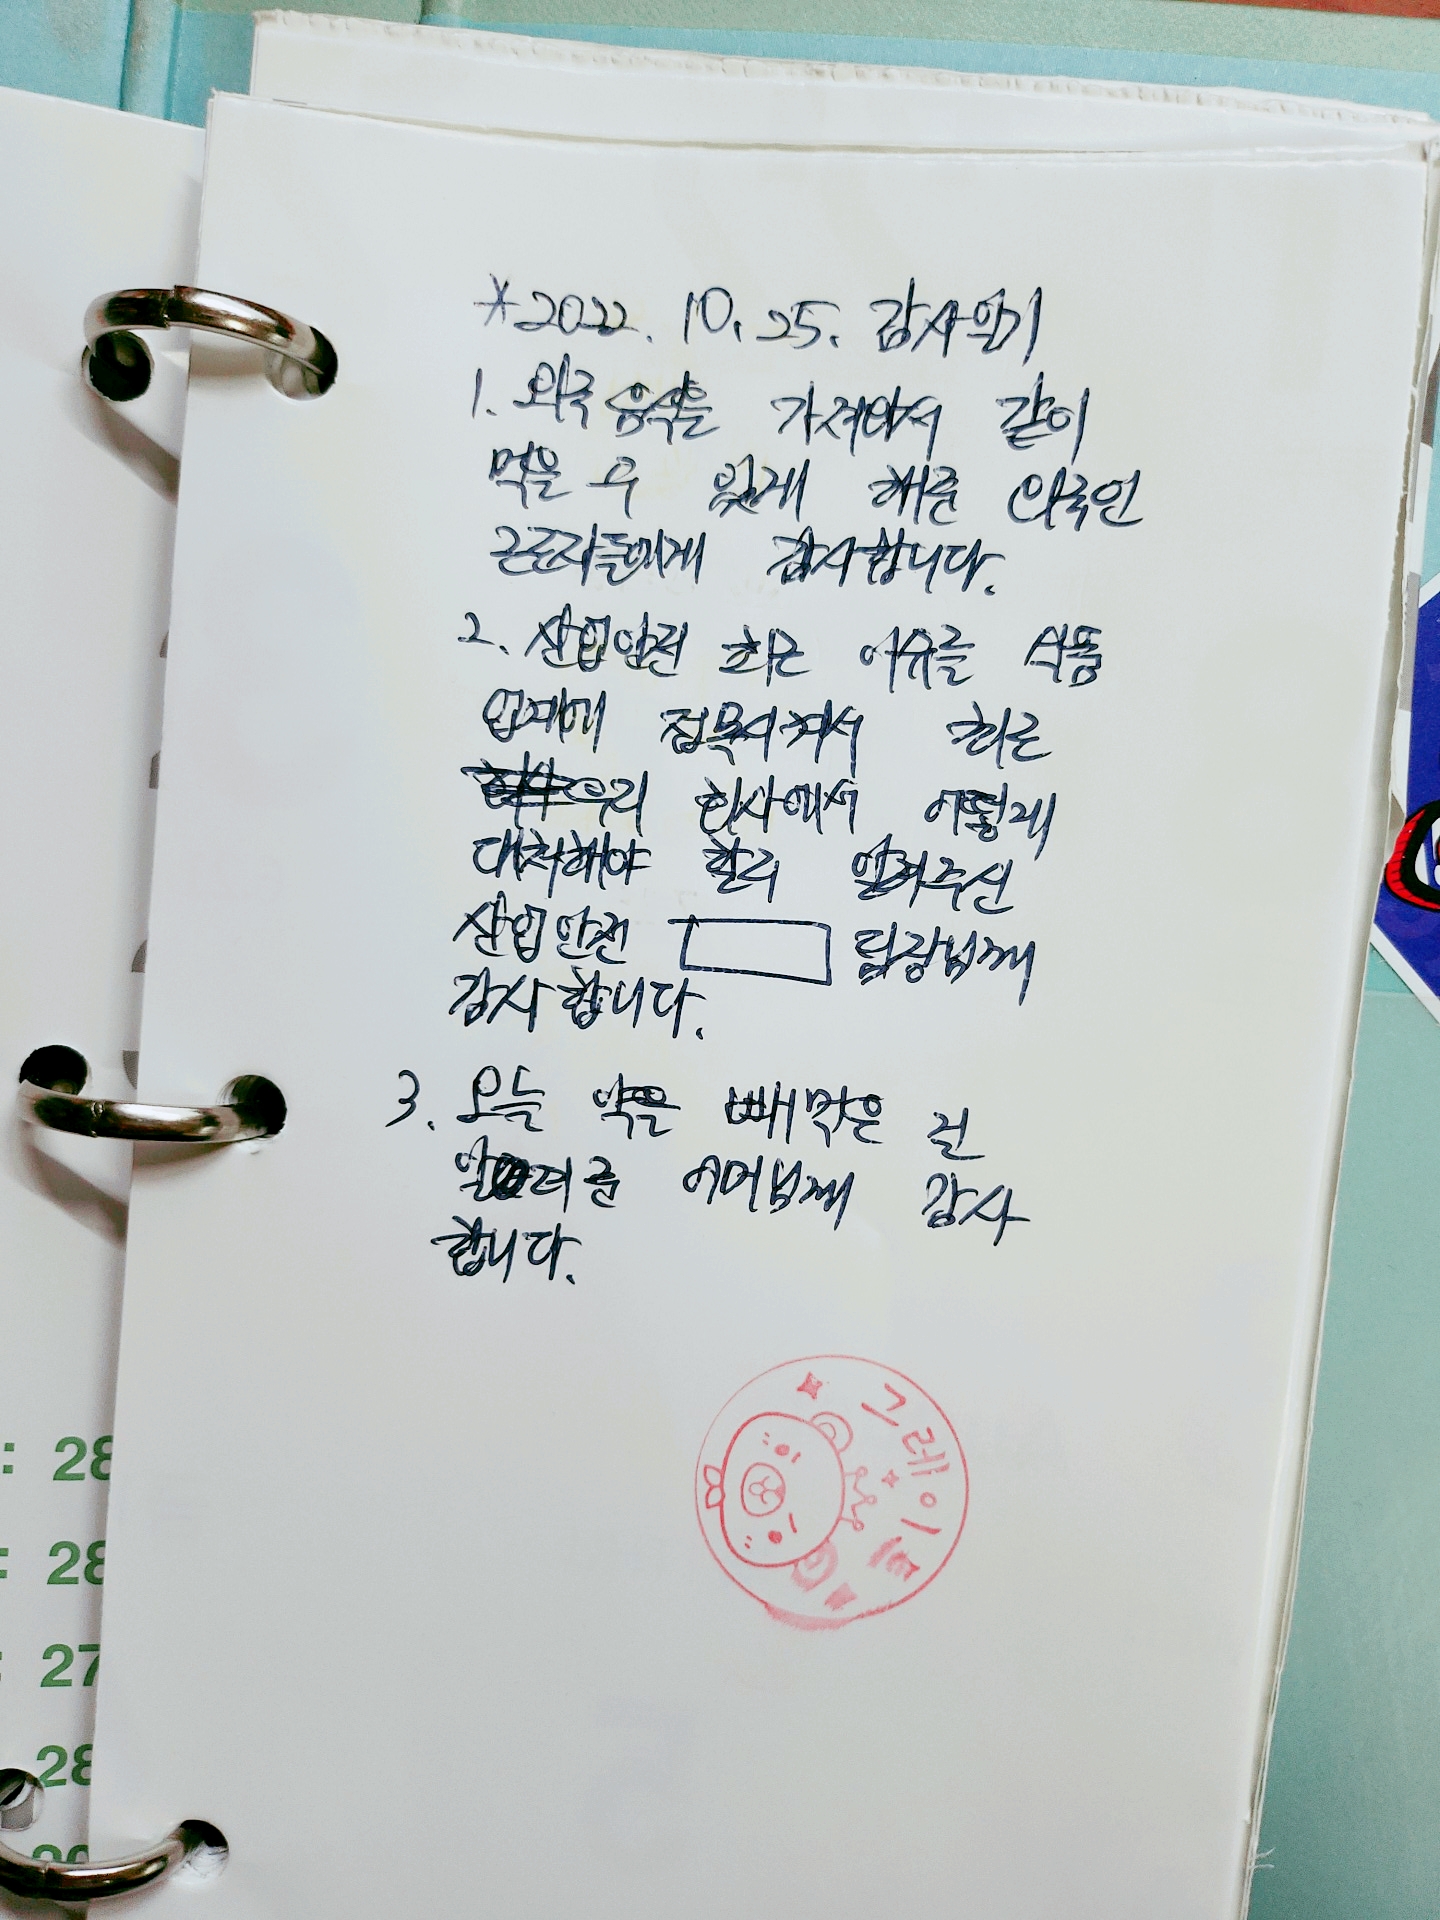 *2022. 10. 25. 감사일기
1. 외국 음식을 가져와서 같이
먹을 수 있게 해준 외국인
근로자들에게 감사합니다.
2. 산업안전 최근 이유를 식품
업계에 접목시켜서 최근
우리 회사에서 어떻게
대처해야 할지 알려주신
산업안전 팀장님께
감사합니다.
3. 오늘 약을 빼먹은 걸
알려준 어머님께 감사
합니다.
그레이트
: 28
: 28
: 27
28